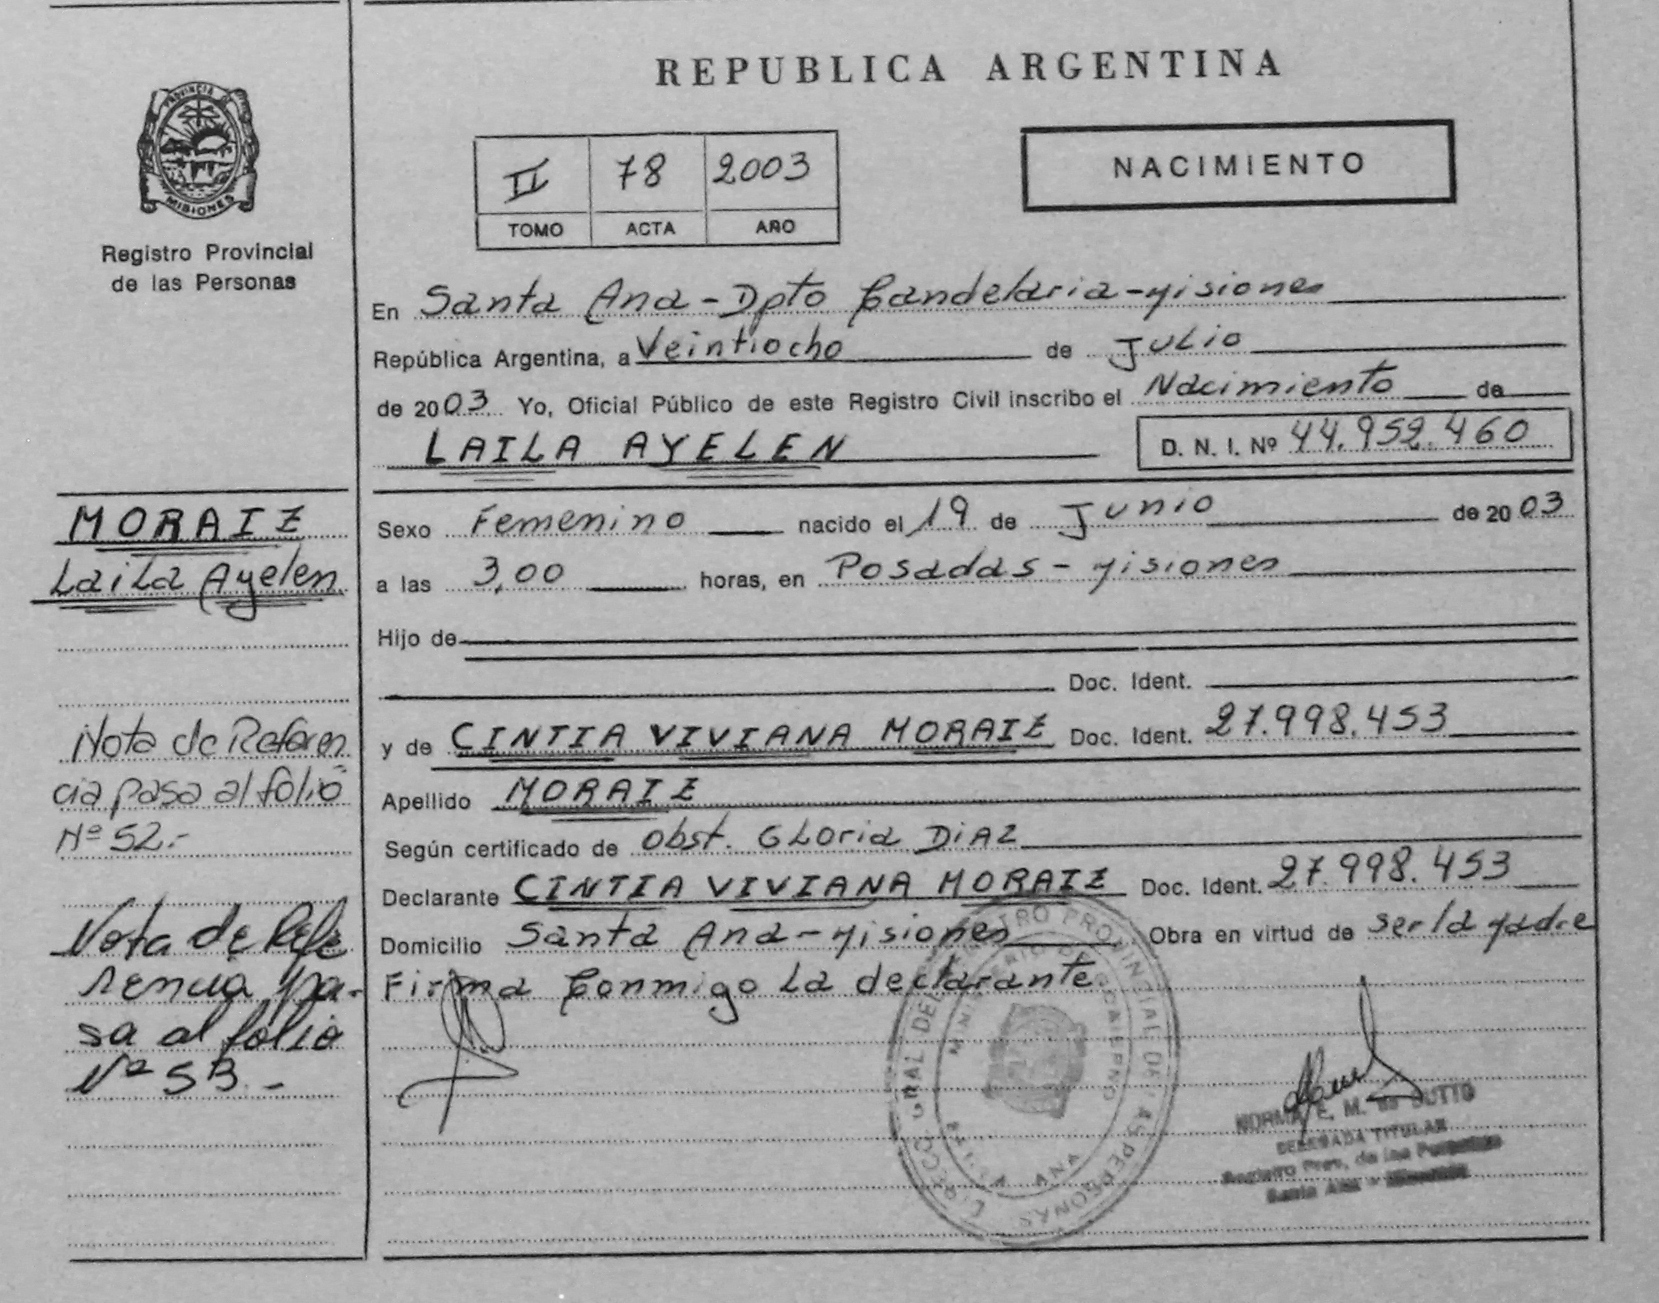 PROVINCIA DE
MISIONES
Registro Provincial
de las Personas
REPUBLICA ARGENTINA
II 78 2003
TOMO ACTA AÑO
NACIMIENTO
En Santa Ana - Dpto Candelaria - Misiones
República Argentina, a Veintiocho de Julio
de 2003 Yo, Oficial Público de este Registro Civil inscribo el Nacimiento de
LAILA AYELEN D. N. I. Nº 44.952.460
MORAIZ
Laila Ayelen
Sexo Femenino nacido el 19 de Junio de 2003
a las 3,00 horas, en Posadas - Misiones
Hijo de
Doc. Ident.
y de CINTIA VIVIANA MORAIZ Doc. Ident. 27.998.453
Apellido MORAIZ
Según certificado de Obst. Gloria DIAZ
Declarante CINTIA VIVIANA MORAIZ Doc. Ident. 27.998.453
Domicilio Santa Ana - Misiones Obra en virtud de ser la Madre
Firma Conmigo la declarante
Nota de Referen
cia pasa al folio
Nº 52.-
Nota de Refe
rencia pa-
sa al folio
Nº 53.-
NORMA E. M. de DUTTO
DELEGADA TITULAR
Registro Prov. de las Personas
Santa Ana - Misiones